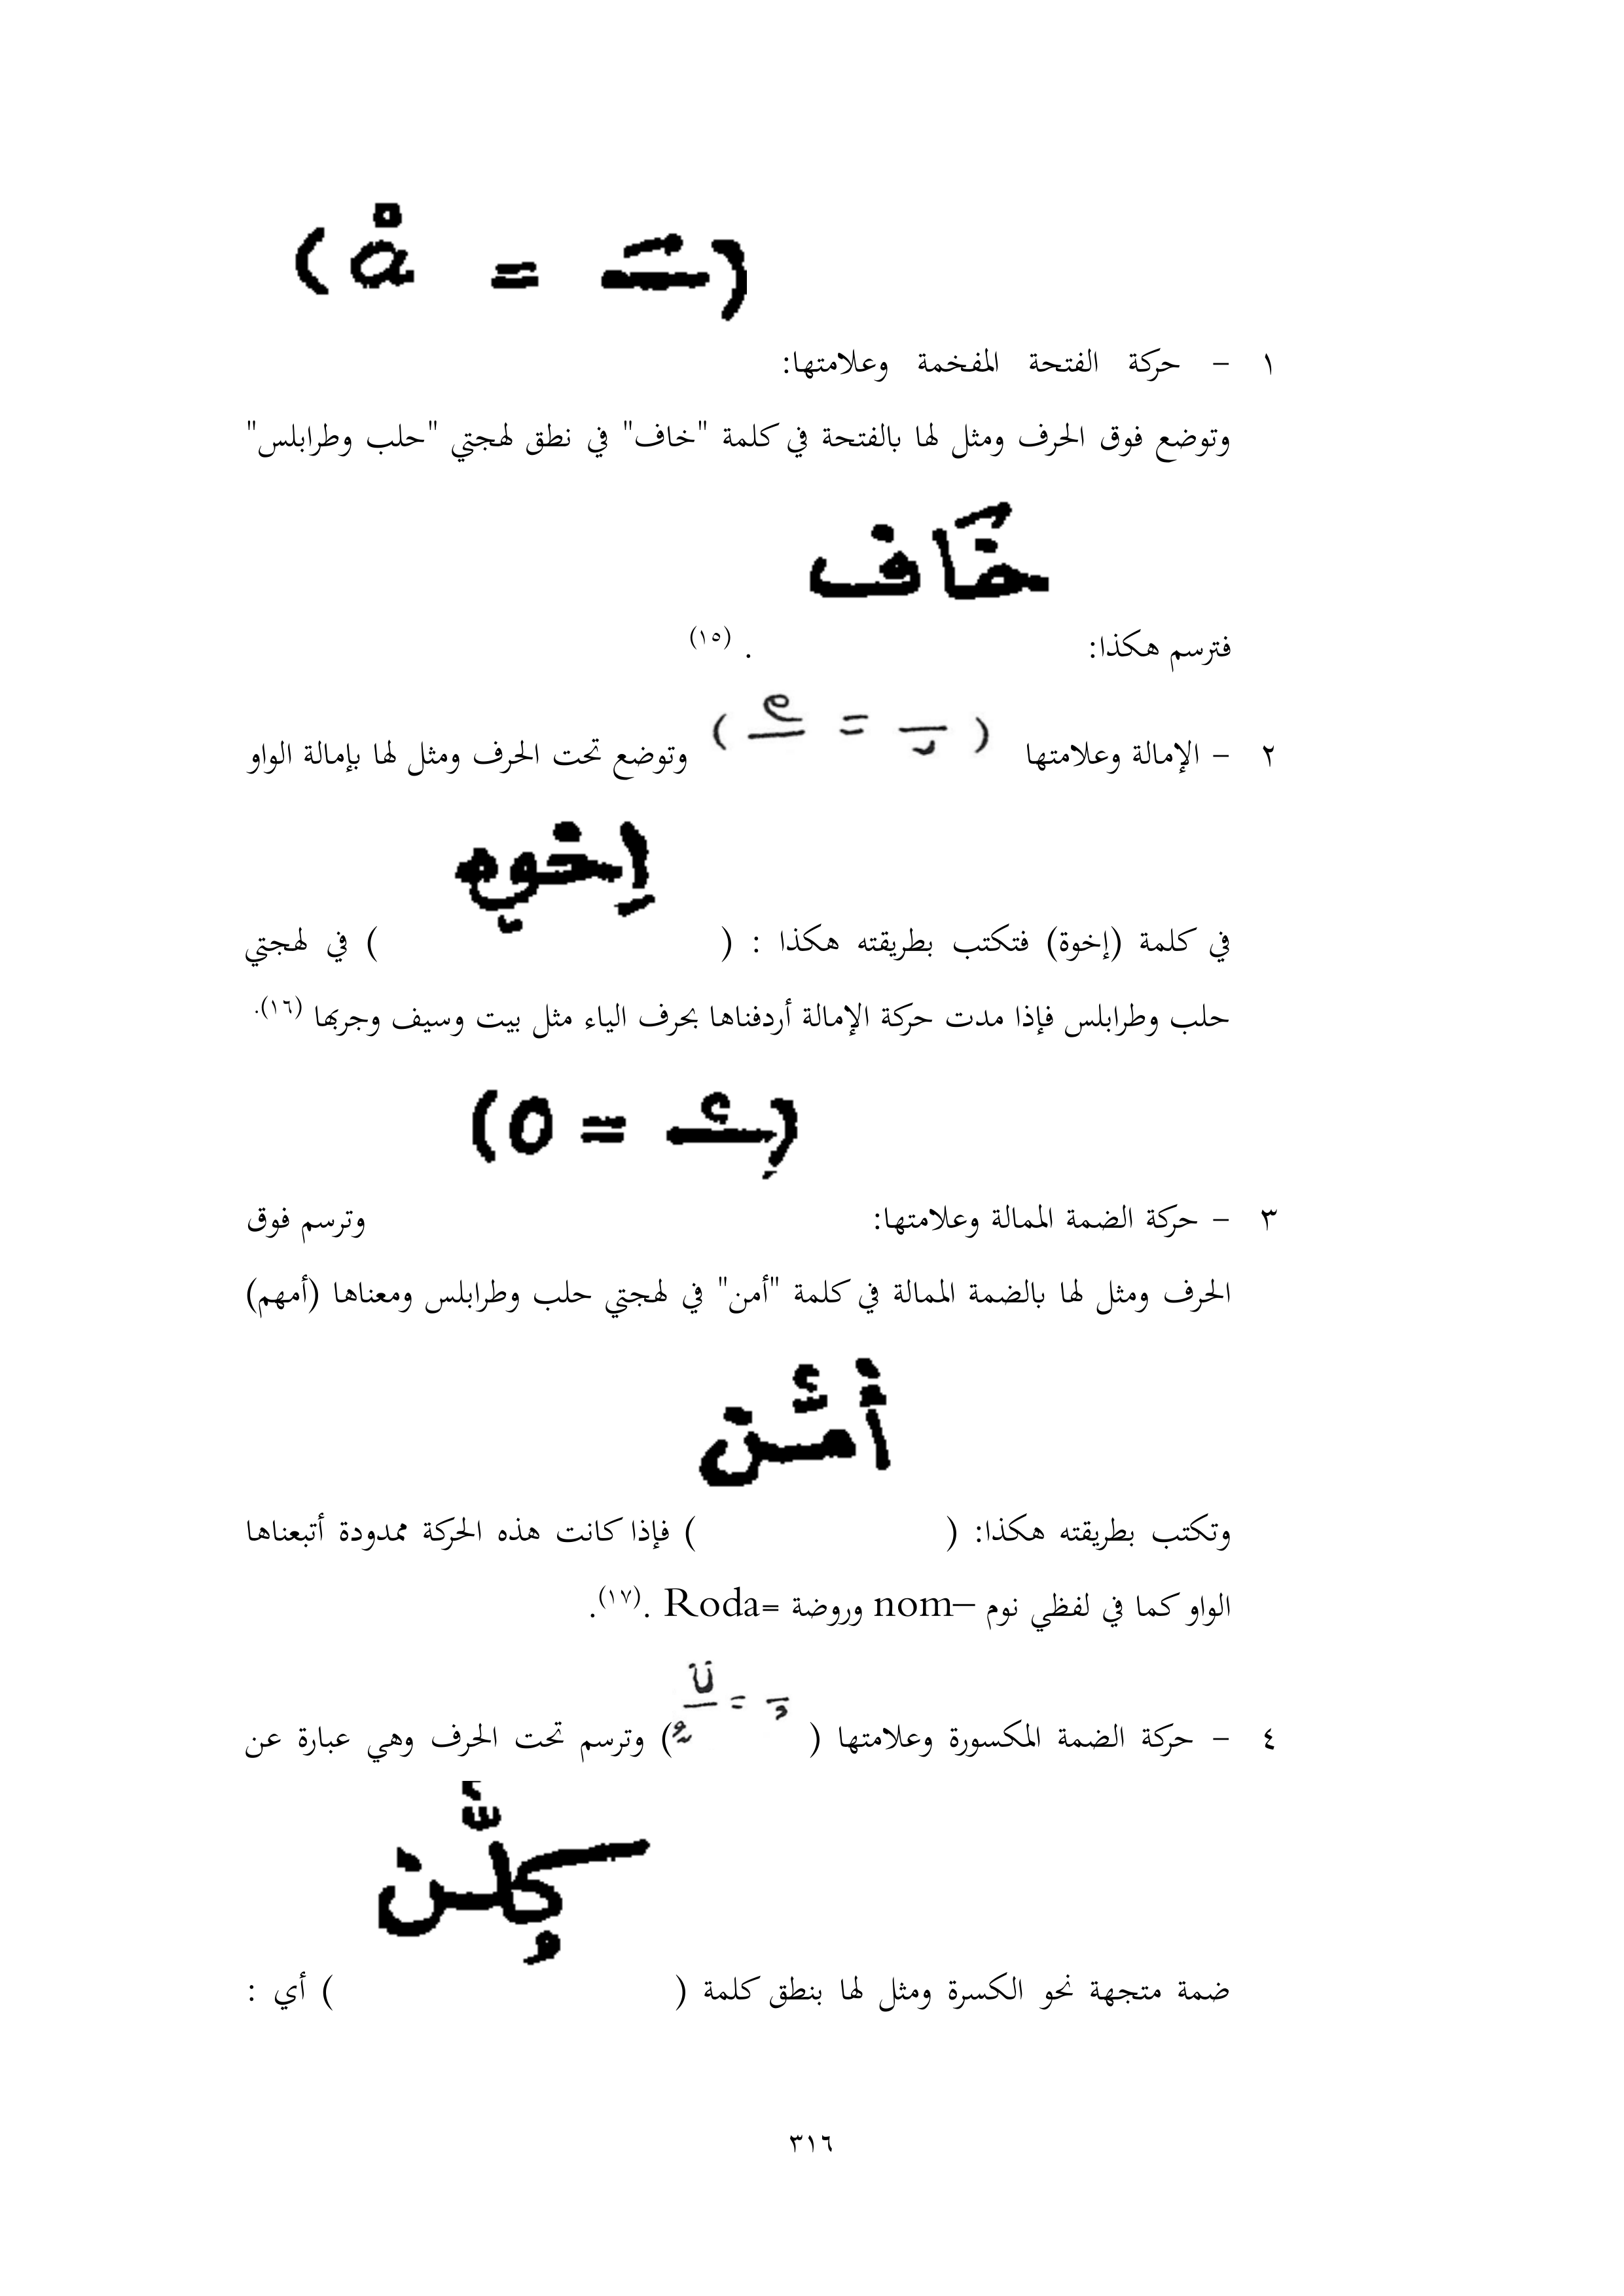 (ـَ = å)
١ – حركة الفتحة المفخمة وعلامتها:
وتوضع فوق الحرف ومثل لها بالفتحة في كلمة "خاف" في نطق لهجتي "حلب وطرابلس"
خَاف
فترسم هكذا: . (١٥)
٢ – الإمالة وعلامتها ( = e ) وتوضع تحت الحرف ومثل لها بإمالة الواو
إخوه
في كلمة (إخوة) فتكتب بطريقته هكذا : ( ) في لهجتي
حلب وطرابلس فإذا مدت حركة الإمالة أردفناها بحرف الياء مثل بيت وسيف وجربها (١٦).
( = o)
٣ – حركة الضمة الممالة وعلامتها: وترسم فوق
الحرف ومثل لها بالضمة الممالة في كلمة "أمن" في لهجتي حلب وطرابلس ومعناها (أمهم)
أمن
وتكتب بطريقته هكذا: ( ) فإذا كانت هذه الحركة ممدودة أتبعناها
الواو كما في لفظي نوم –nom وروضة =Roda .(١٧).
٤ – حركة الضمة المكسورة وعلامتها ( = ü ) وترسم تحت الحرف وهي عبارة عن
كلَّن
ضمة متجهة نحو الكسرة ومثل لها بنطق كلمة ( ) أي :
٣١٦